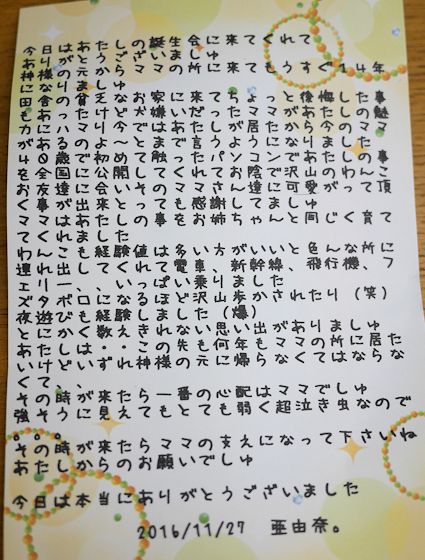 今日はあたしの誕生会に来てくれて
ありがとうござまましゅ
神様の元からママの所に来てもうすぐ14年
田舎の貧乏な家に来てちょっと後悔した事
もあったけど犬嫌いだったママの魅
力 今ではあたしが居たから今のママ
があるとまで言うようになりました
40歳の 初めて触ったパソコンであたしの事
を全国に公開してくれてお陰で沢山のわんこ
お友達が出来そのママさん達に可愛がって頂
く事が出来とても感謝してましゅ
ママはあたしの事をお姉ちゃんと同じく育て
てくれました
わんこも経験値は多い方がいいと色んな所に
連れ出してくれて電車、新幹線、飛行機、フ
ェリー、、いっぱい乗りました
ズタボロになるほど沢山歩かされたり（笑）
夜遊びも経験しました（爆）
とにかく数えきれない思い出がありましゅ
あたしは・・この先も何年もママの所に居た
いけどいずれ神様の元に帰らなくてはならな
くて、、
その時が来たら一番の心配はママでしゅ
強そうに見えてもとても弱く超泣き虫なので
。。。
その時が来たらママの支えになって下さいね
あたしからのお願いでしゅ
今日は本当にありがとうございました
2016/11/27 亜由奈。